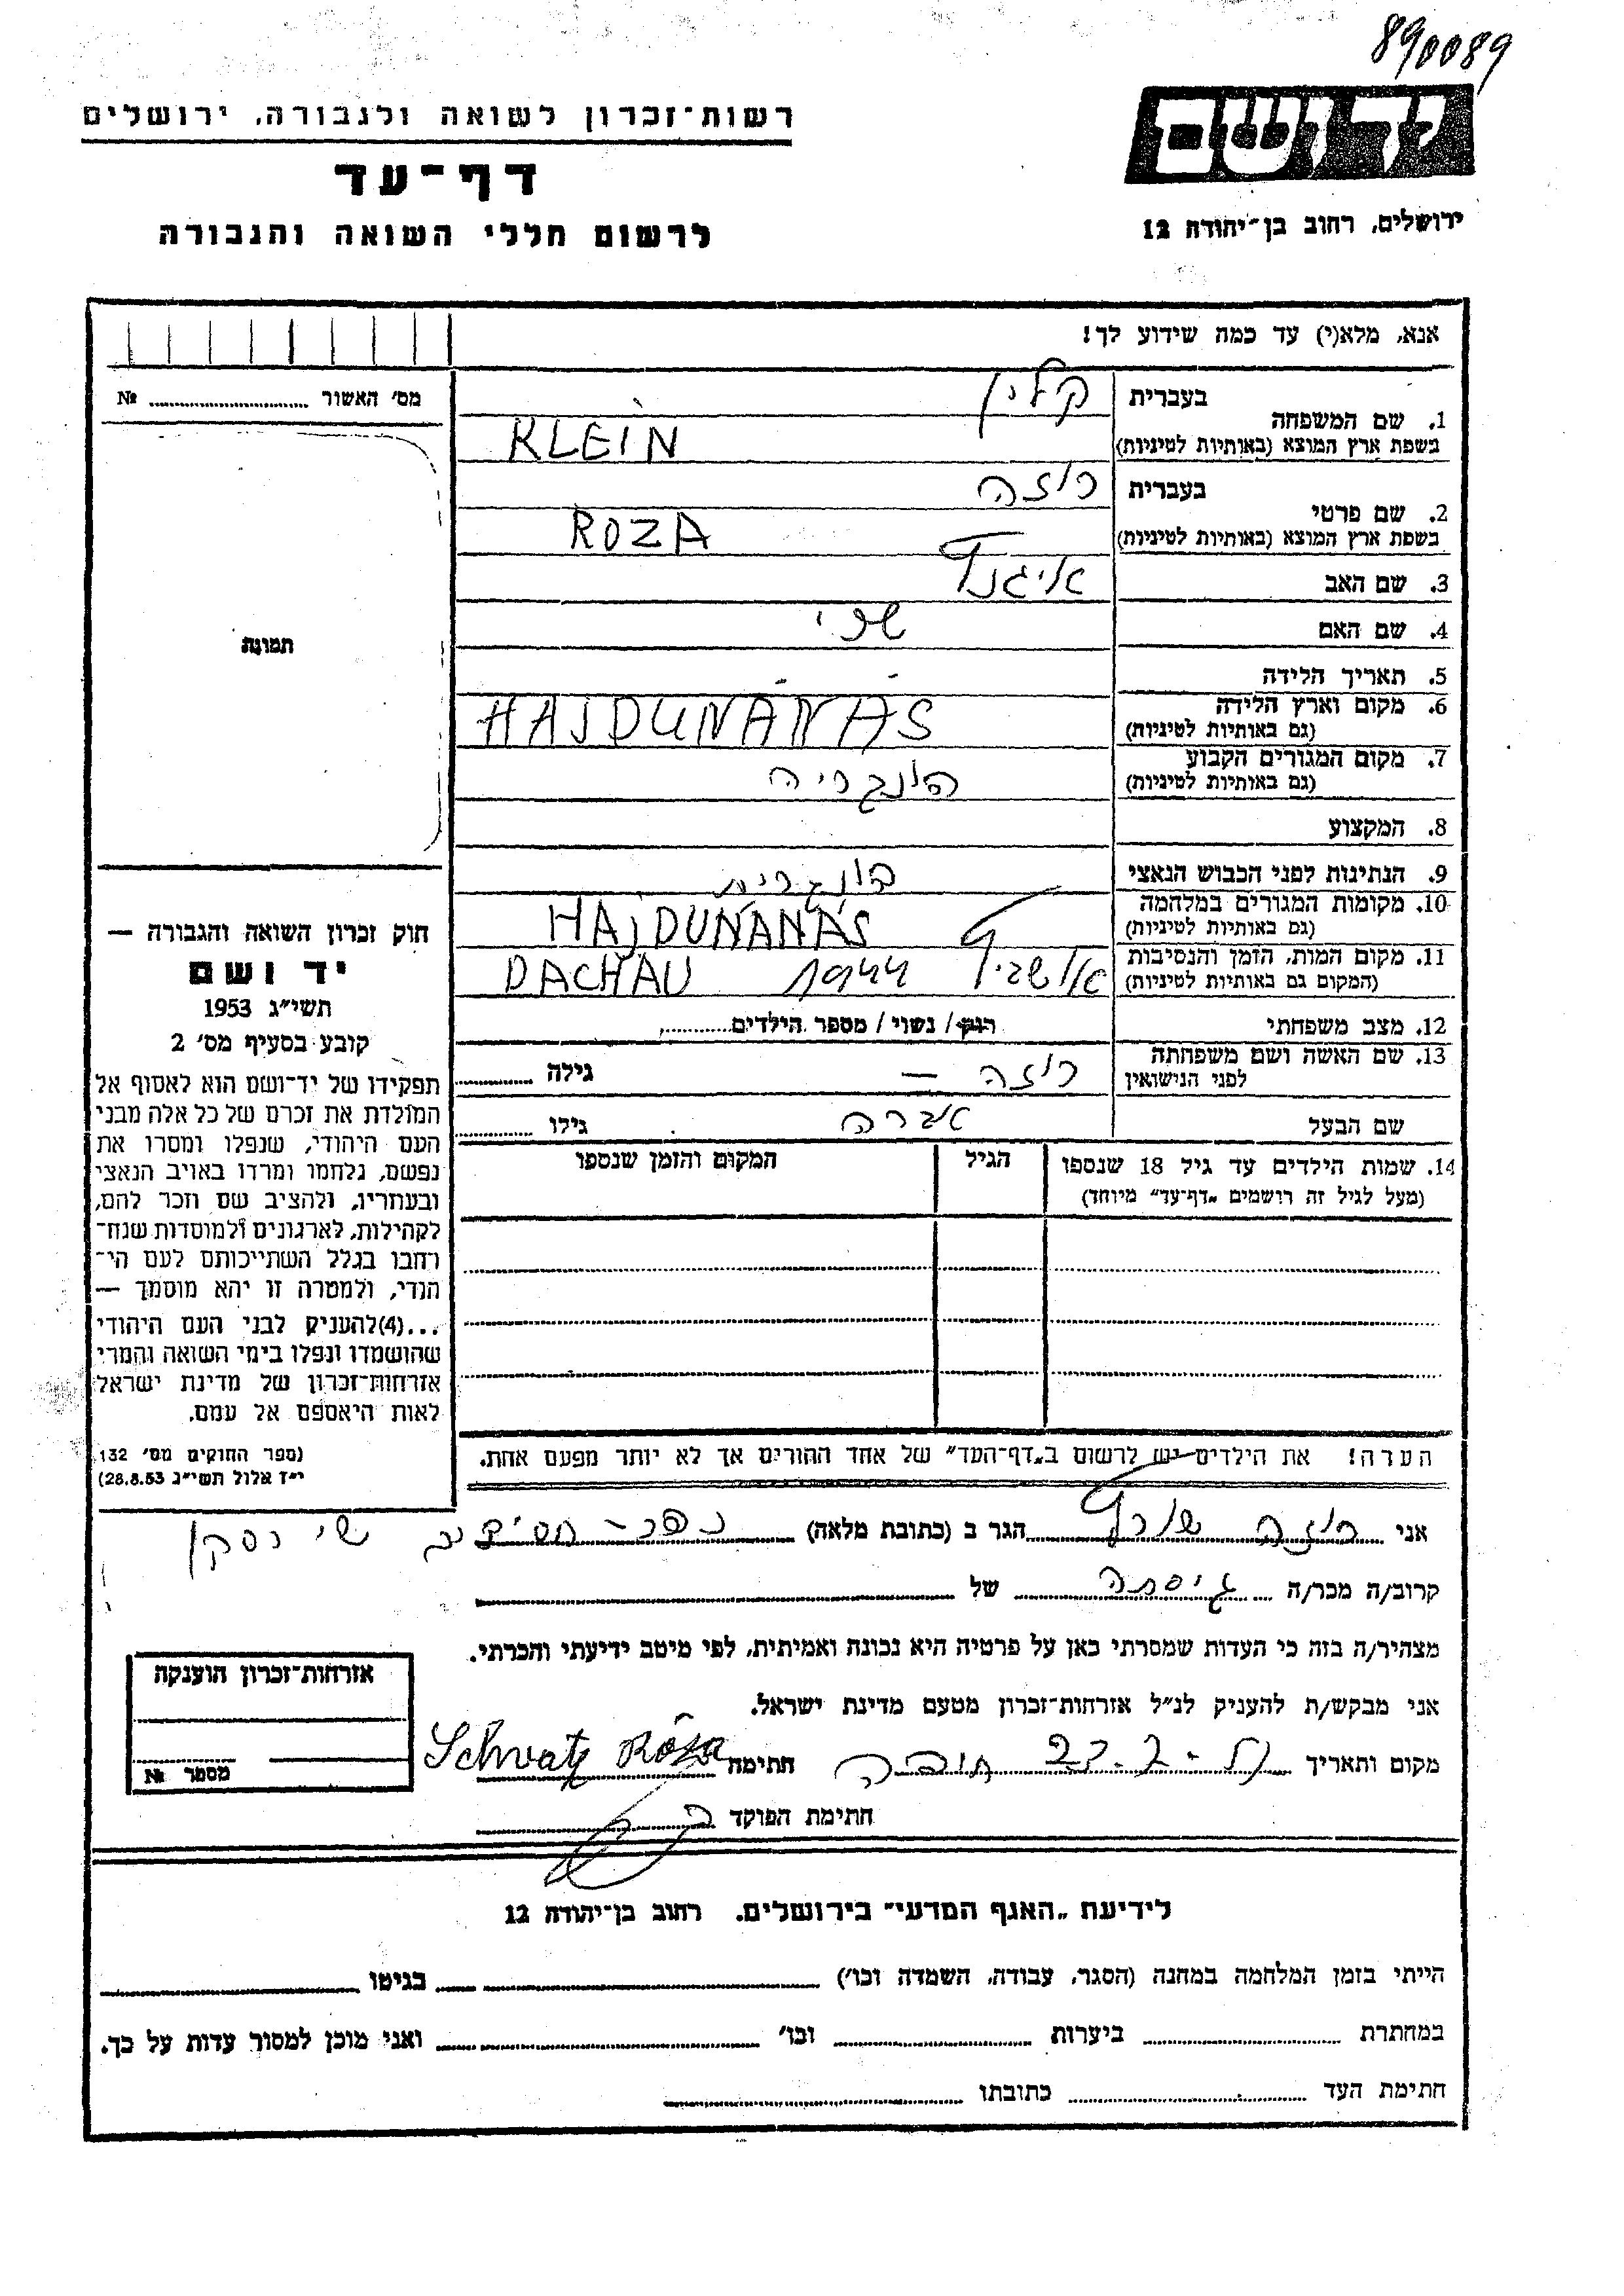 890089
יד ושם
רשות־זכרון לשואה ולגבורה, ירושלים
דף־עד
ירושלים, רחוב בן־יהודה 12
לרשום חללי השואה והגבורה
אנא, מלא(י) עד כמה שידוע לך!
מס' האשור ........ №
תמונה
1. שם המשפחה
בעברית קליין
בשפת ארץ המוצא (באותיות לטיניות) KLEIN
2. שם פרטי
בעברית רוזה
בשפת ארץ המוצא (באותיות לטיניות) ROZA
3. שם האב
4. שם האם שרי
5. תאריך הלידה - -
6. מקום וארץ הלידה
(גם באותיות לטיניות) HAJDUNANAS
7. מקום המגורים הקבוע
(גם באותיות לטיניות) הונגריה
8. המקצוע
9. הנתינות לפני הכבוש הנאצי הונגרית
10. מקומות המגורים במלחמה
(גם באותיות לטיניות) HAJDUNÁNÁS
11. מקום המות, הזמן והנסיבות
(המקום גם באותיות לטיניות) אושביץ 1944 DACHAU
12. מצב משפחתי רווק / נשוי / מספר הילדים........
13. שם האשה ושם משפחתה
לפני הנישואין רוזה — גילה ........
שם הבעל גילו ........
14. שמות הילדים עד גיל 18 שנספו
(מעל לגיל זה רושמים „דף־עד" מיוחד)
הגיל
המקום והזמן שנספו
חוק זכרון השואה והגבורה —
יד ושם
תשי"ג 1953
קובע בסעיף מס' 2
תפקידו של יד־ושם הוא לאסוף אל
המולדת את זכרם של כל אלה מבני
העם היהודי, שנפלו ומסרו את
נפשם, נלחמו ומרדו באויב הנאצי
ובעוזריו, ולהציב שם וזכר להם,
לקהילות, לארגונים ולמוסדות שנח־
רבו בגלל השתייכותם לעם הי־
הודי, ולמטרה זו יהא מוסמך —
...(4)להעניק לבני העם היהודי
שהושמדו ונפלו בימי השואה והמרי
אזרחות־זכרון של מדינת ישראל
לאות היאספם אל עמם.
(ספר החוקים מס' 132
י"ז אלול תשי"ג 28.8.53)
הערה! את הילדים יש לרשום ב„דף־העד" של אחד ההורים אך לא יותר מפעם אחת.
אני רוזה שורץ הגר ב (כתובת מלאה) כפר-חסידים
קרוב/ה מכר/ה גיסתה של
מצהיר/ה בזה כי העדות שמסרתי כאן על פרטיה היא נכונה ואמיתית, לפי מיטב ידיעתי והכרתי.
אני מבקש/ת להעניק לנ"ל אזרחות־זכרון מטעם מדינת ישראל.
מקום ותאריך חתימה Schvatz Róza
חתימת הפוקד
אזרחות־זכרון הוענקה
מספר №
לידיעת „האגף המדעי" בירושלים, רחוב בן־יהודה 12
הייתי בזמן המלחמה במחנה (הסגר, עבודה, השמדה וכו') בגיטו
במחתרת ביערות וכו' ואני מוכן למסור עדות על כך.
חתימת העד כתובתו